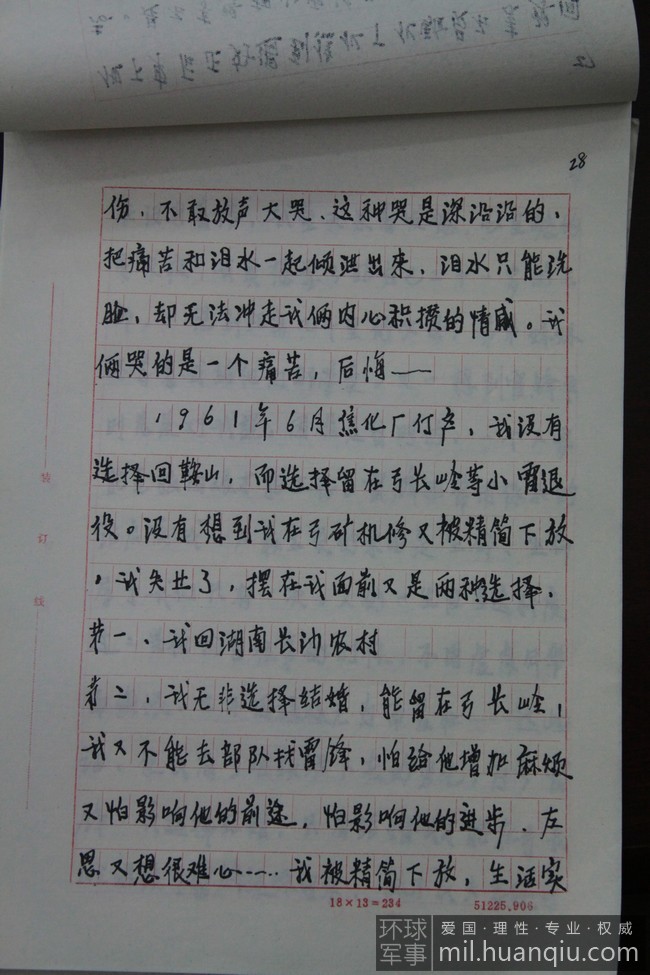 28
伤、不敢放声大哭、这种哭是深沿沿的,
把痛苦和泪水一起倾泄出来,泪水只能洗
脸,却无法冲走我俩内心积攒的情感。我
俩哭的是一个痛苦,后悔——
1961年6月焦化厂付产,我没有
选择回鞍山,而选择留在弓长岭等小雷退
役。没有想到我在弓矿机修又被精简下放
,我失业了,摆在我面前又是两种选择,
第一、我回湖南长沙农村
第二,我无非选择结婚,能留在弓长岭,
我又不能去部队找雷锋,怕给他增加麻烦
又怕影响他的前途,怕影响他的进步.左
思又想很难心……我被精简下放,生活实
装
订
线
18×13=234
51225.906
环球军事
爱国·理性·专业·权威
mil.huanqiu.com